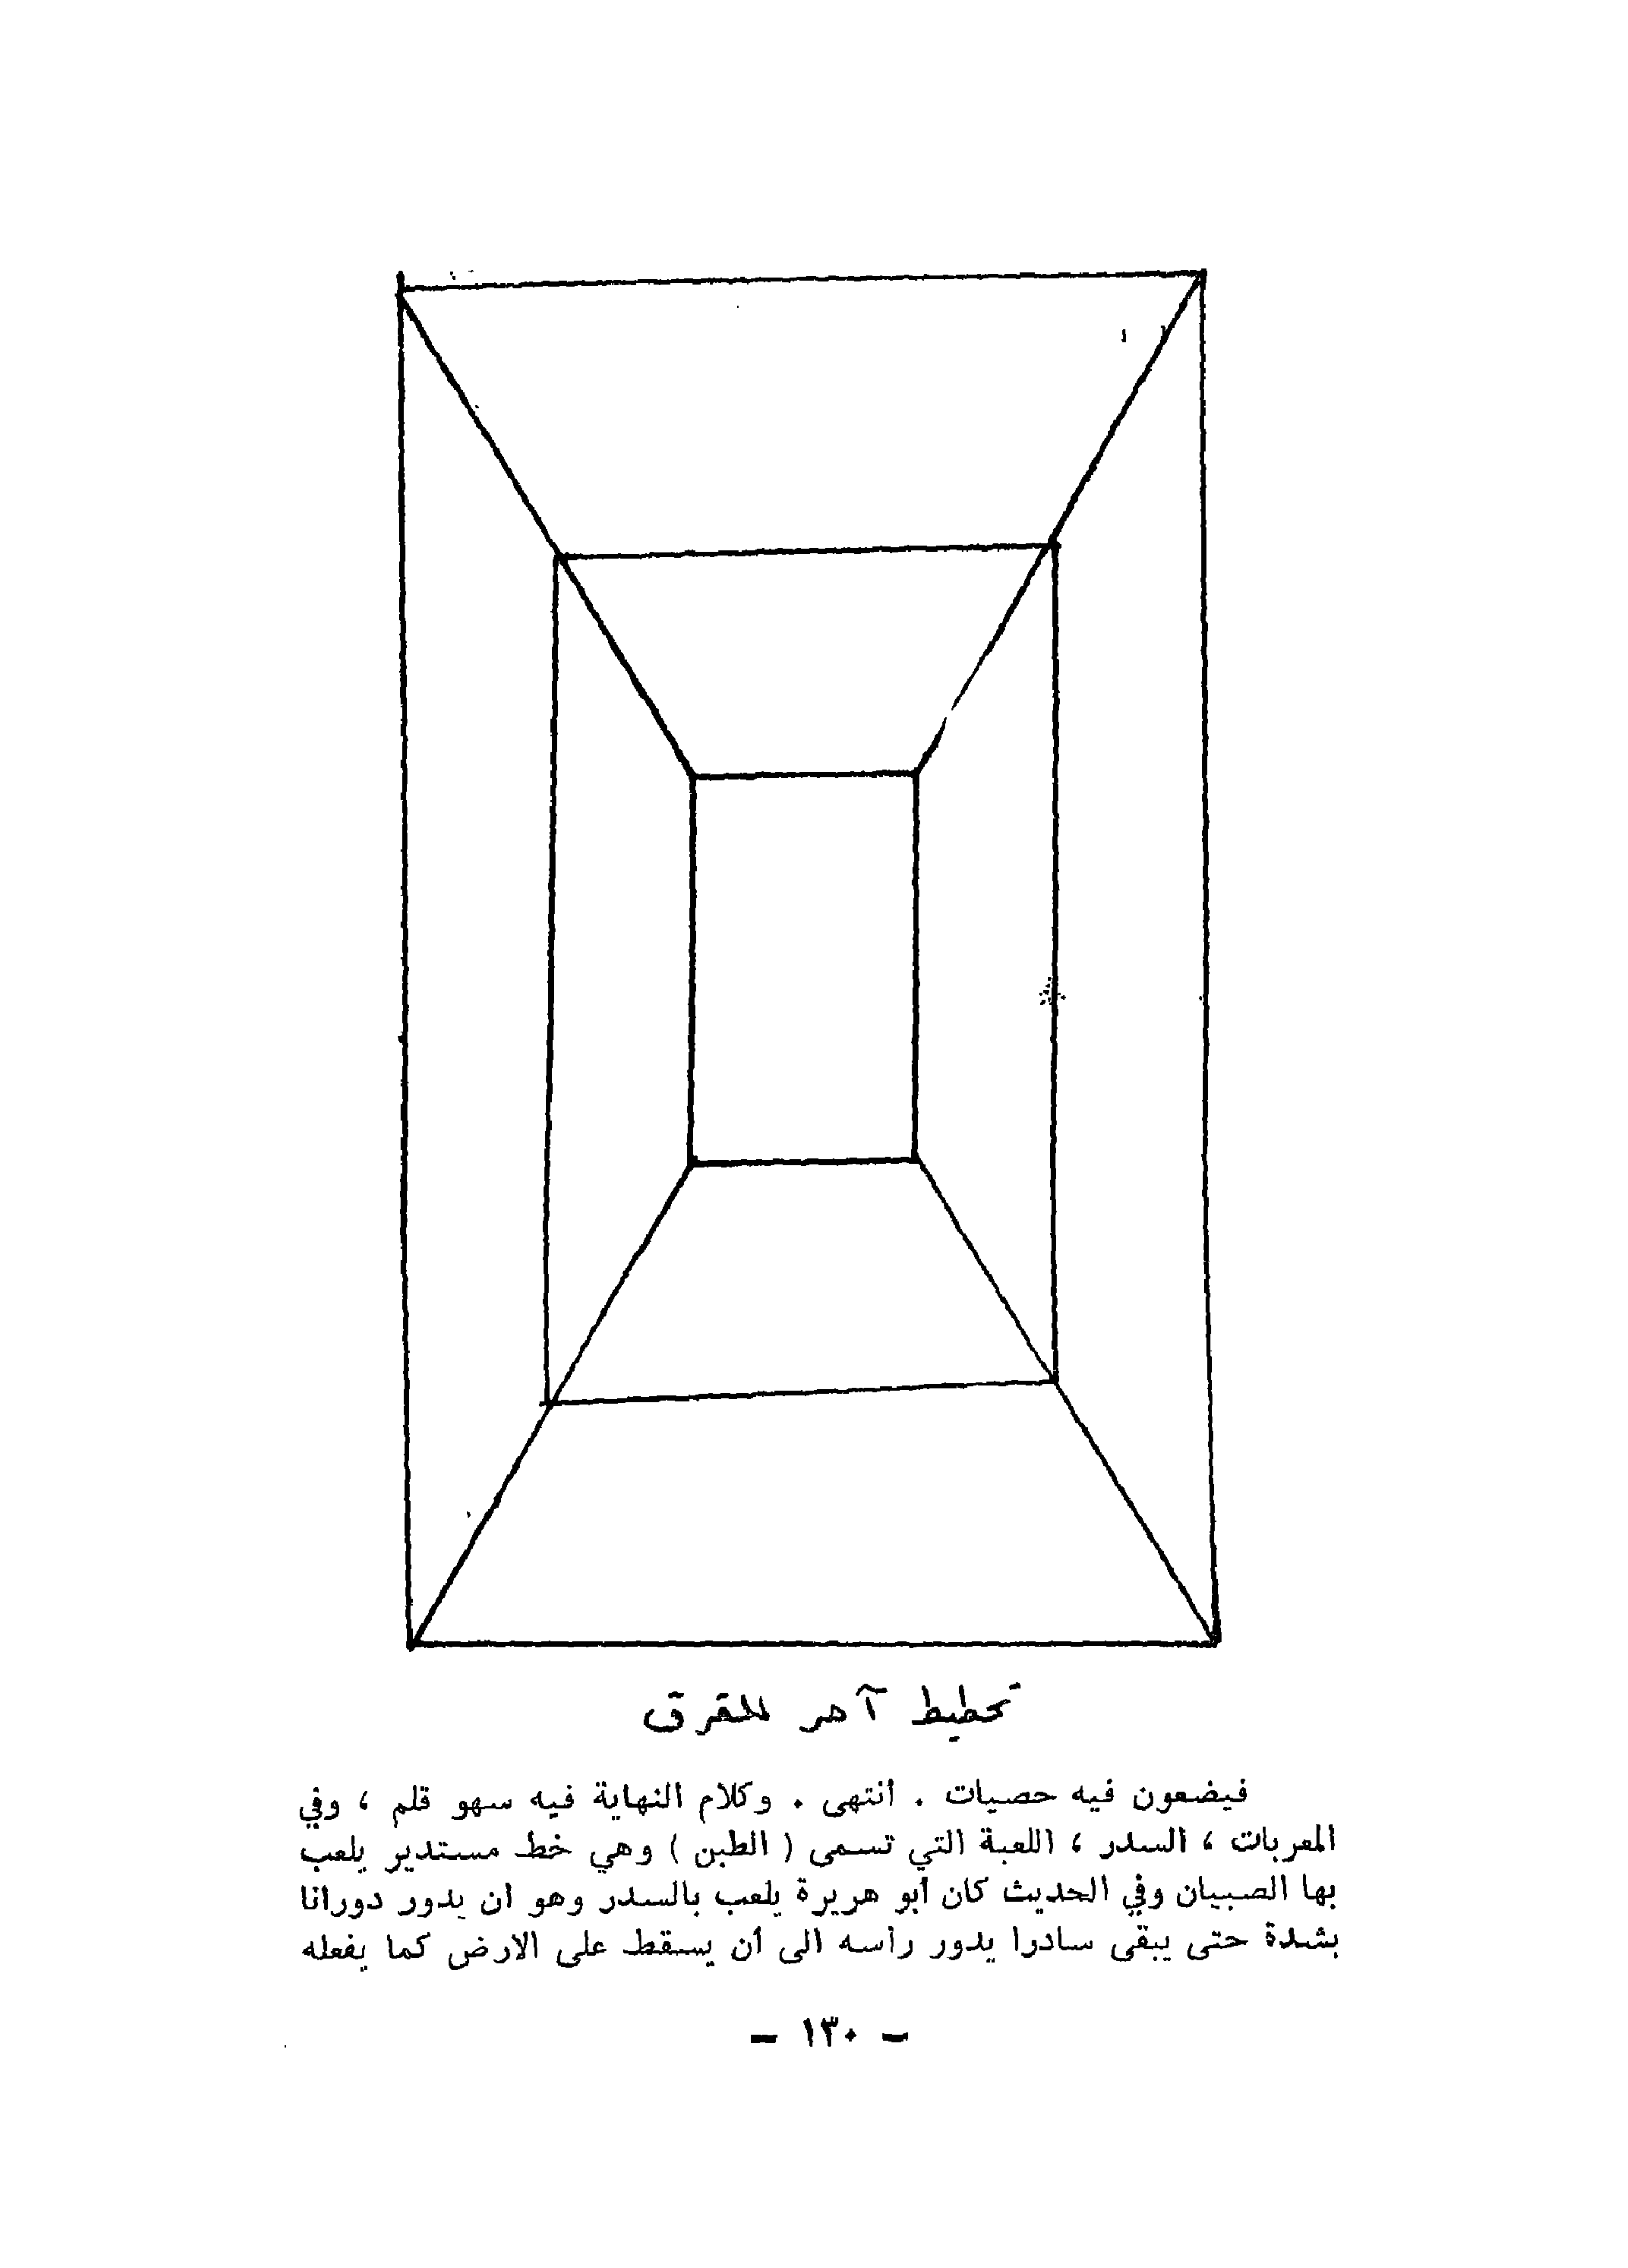 تخطيط آخر للقرق
فيضعون فيه حصيات . انتهى . وكلام النهاية فيه سهو قلم ، وفي
المعربات ، السدر ، اللعبة التي تسمى ( الطبن ) وهي خط مستدير يلعب
بها الصبيان وفي الحديث كان أبو هريرة يلعب بالسدر وهو ان يدور دورانا
بشدة حتى يبقى سادرا يدور رأسه الى أن يسقط على الارض كما يفعله
- ١٣٠ -